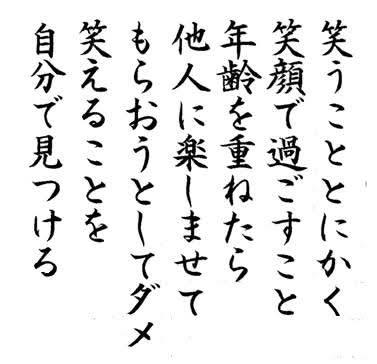 笑うこととにかく
笑顔で過ごすこと
年齢を重ねたら
他人に楽しませて
もらおうとしてダメ
笑えることを
自分で見つける